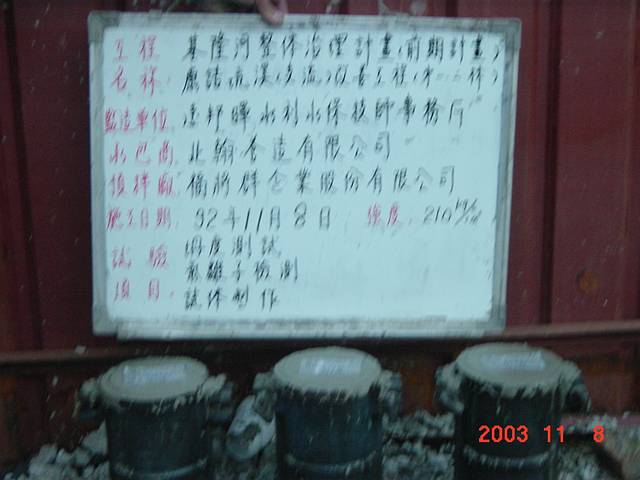 工程 基隆河整体治理計畫(前期計畫)
名称 鹿諸坑溪(支流)改善工程(第二標)
監造單位 連邦暉水利水保技師事務所
承包商 北翰营造有限公司
預拌廠 楠將群企業股份有限公司
施工日期 92年11月8日 強度 210 kg/cm²
試驗 坍度測試
項目 氯離子檢測
試体製作
2003 11 8